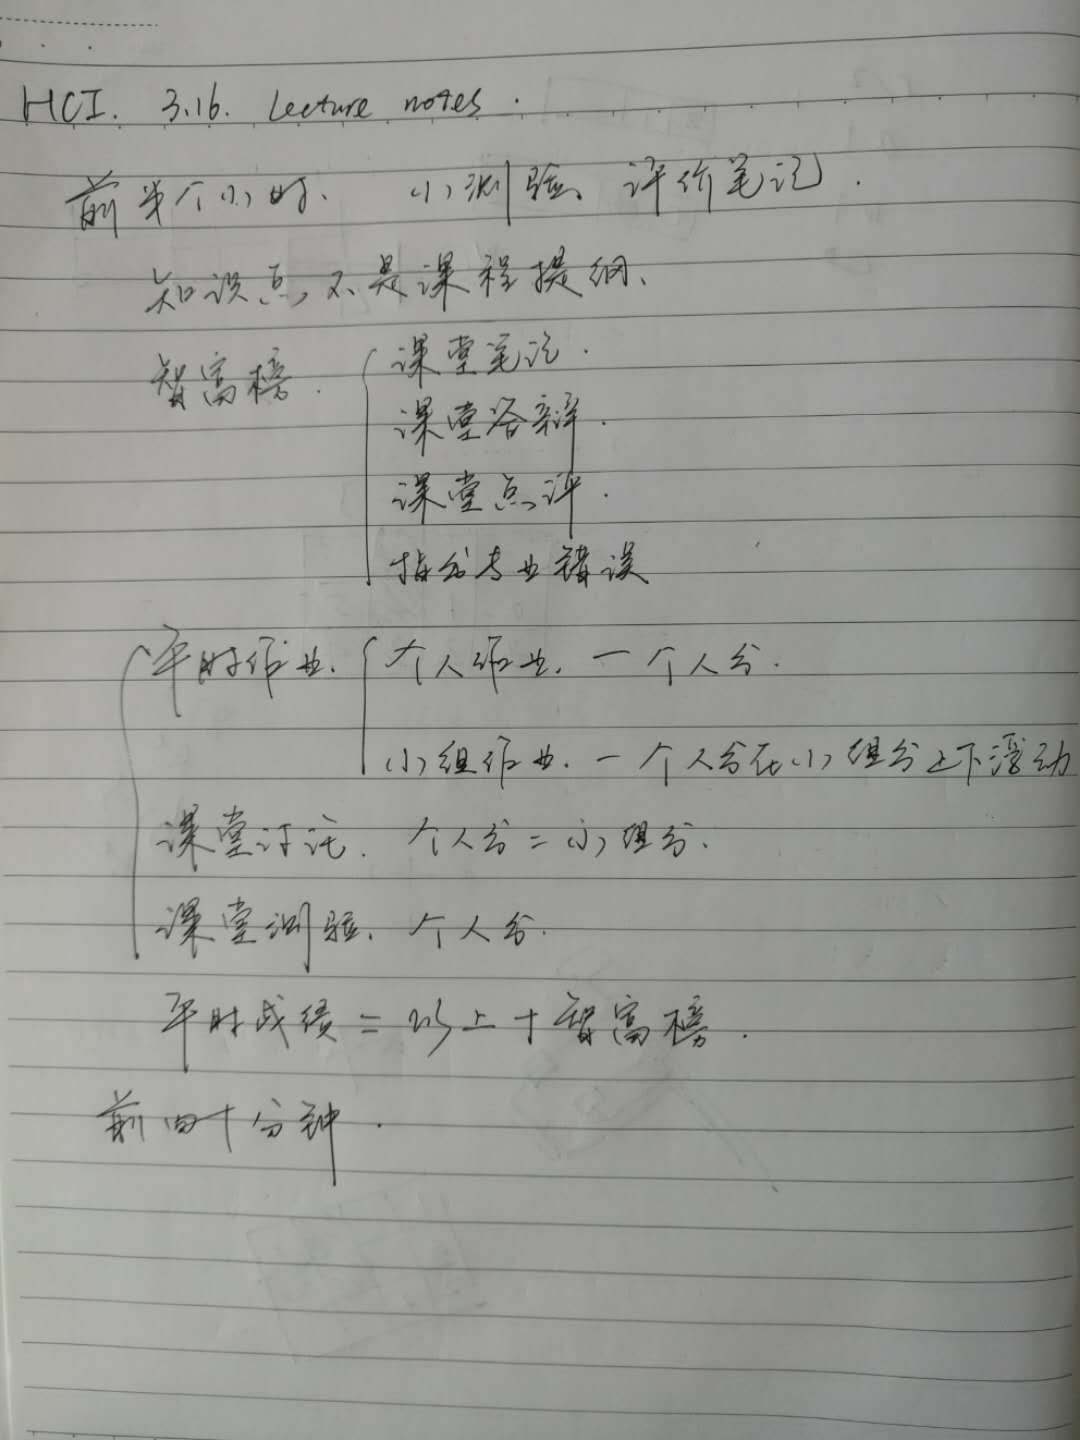 HCI. 3.16. Lecture notes.
前半个小时、 小测验、评价笔记.
知识点,不是课程提纲、
智富榜. 课堂笔记.
课堂答辩.
课堂点评.
指出专业错误
平时作业. 个人作业. 一个人分.
小组作业. 一个人分在小组分上下浮动
课堂讨论. 个人分=小组分.
课堂测验. 个人分.
平时成绩=以上+智富榜.
前四十分钟.